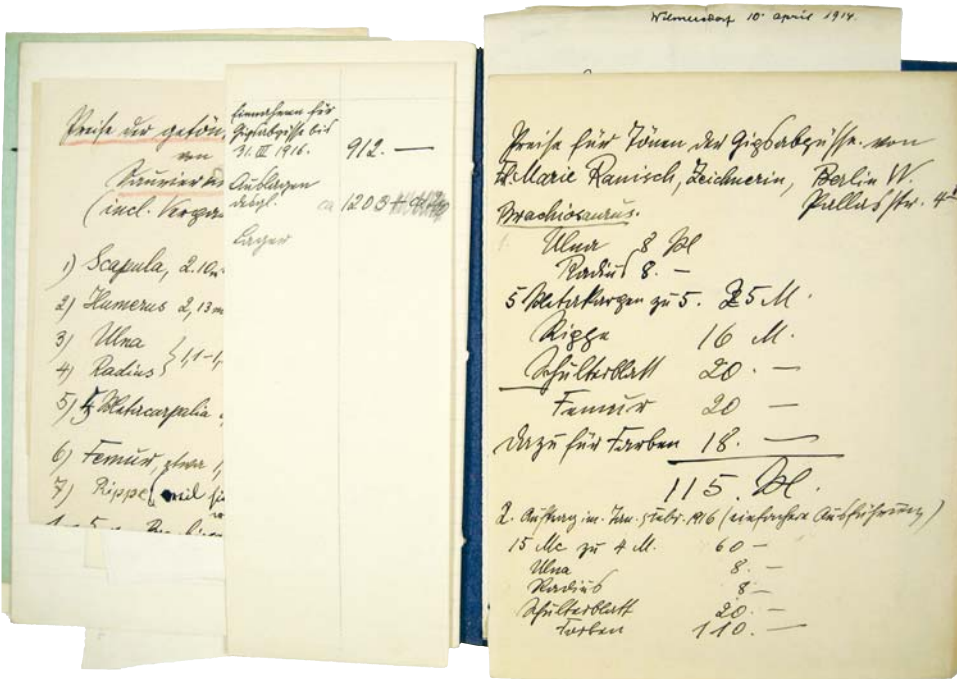 Preise der getön
von
Saurier
(incl. Verpa
1) Scapula, 2.10
2) Humerus 2,13 m
3) Ulna
4) Radius } 1,1-1,
5) 5 Metacarpalia
6) Femur, etwa 1,
7) Rippe (weil
Einnahmen für
Gipsabgüsse bis
31. III 1916. 912. —
Auslagen
desgl. ca 1203
Lager
Wilmersdorf 10. April 1914.
Preise für Tönen der Gipsabgüsse von
Frl. Marie Ranisch, Zeichnerin, Berlin W.
Pallasstr. 4
Brachiosaurus.
Ulna 8 M
Radius 8. —
5 Metakarpen zu 5. 25 M.
Rippe 16 M.
Schulterblatt 20. —
Femur 20 —
Dazu für Farben 18. —
115. M.
2. Auftrag im Jan. Febr. 1916 (einfachere Ausführung)
15 Mc zu 4 M. 60 —
Ulna 8. —
Radius 8 —
Schulterblatt 20. —
Farben 110. —